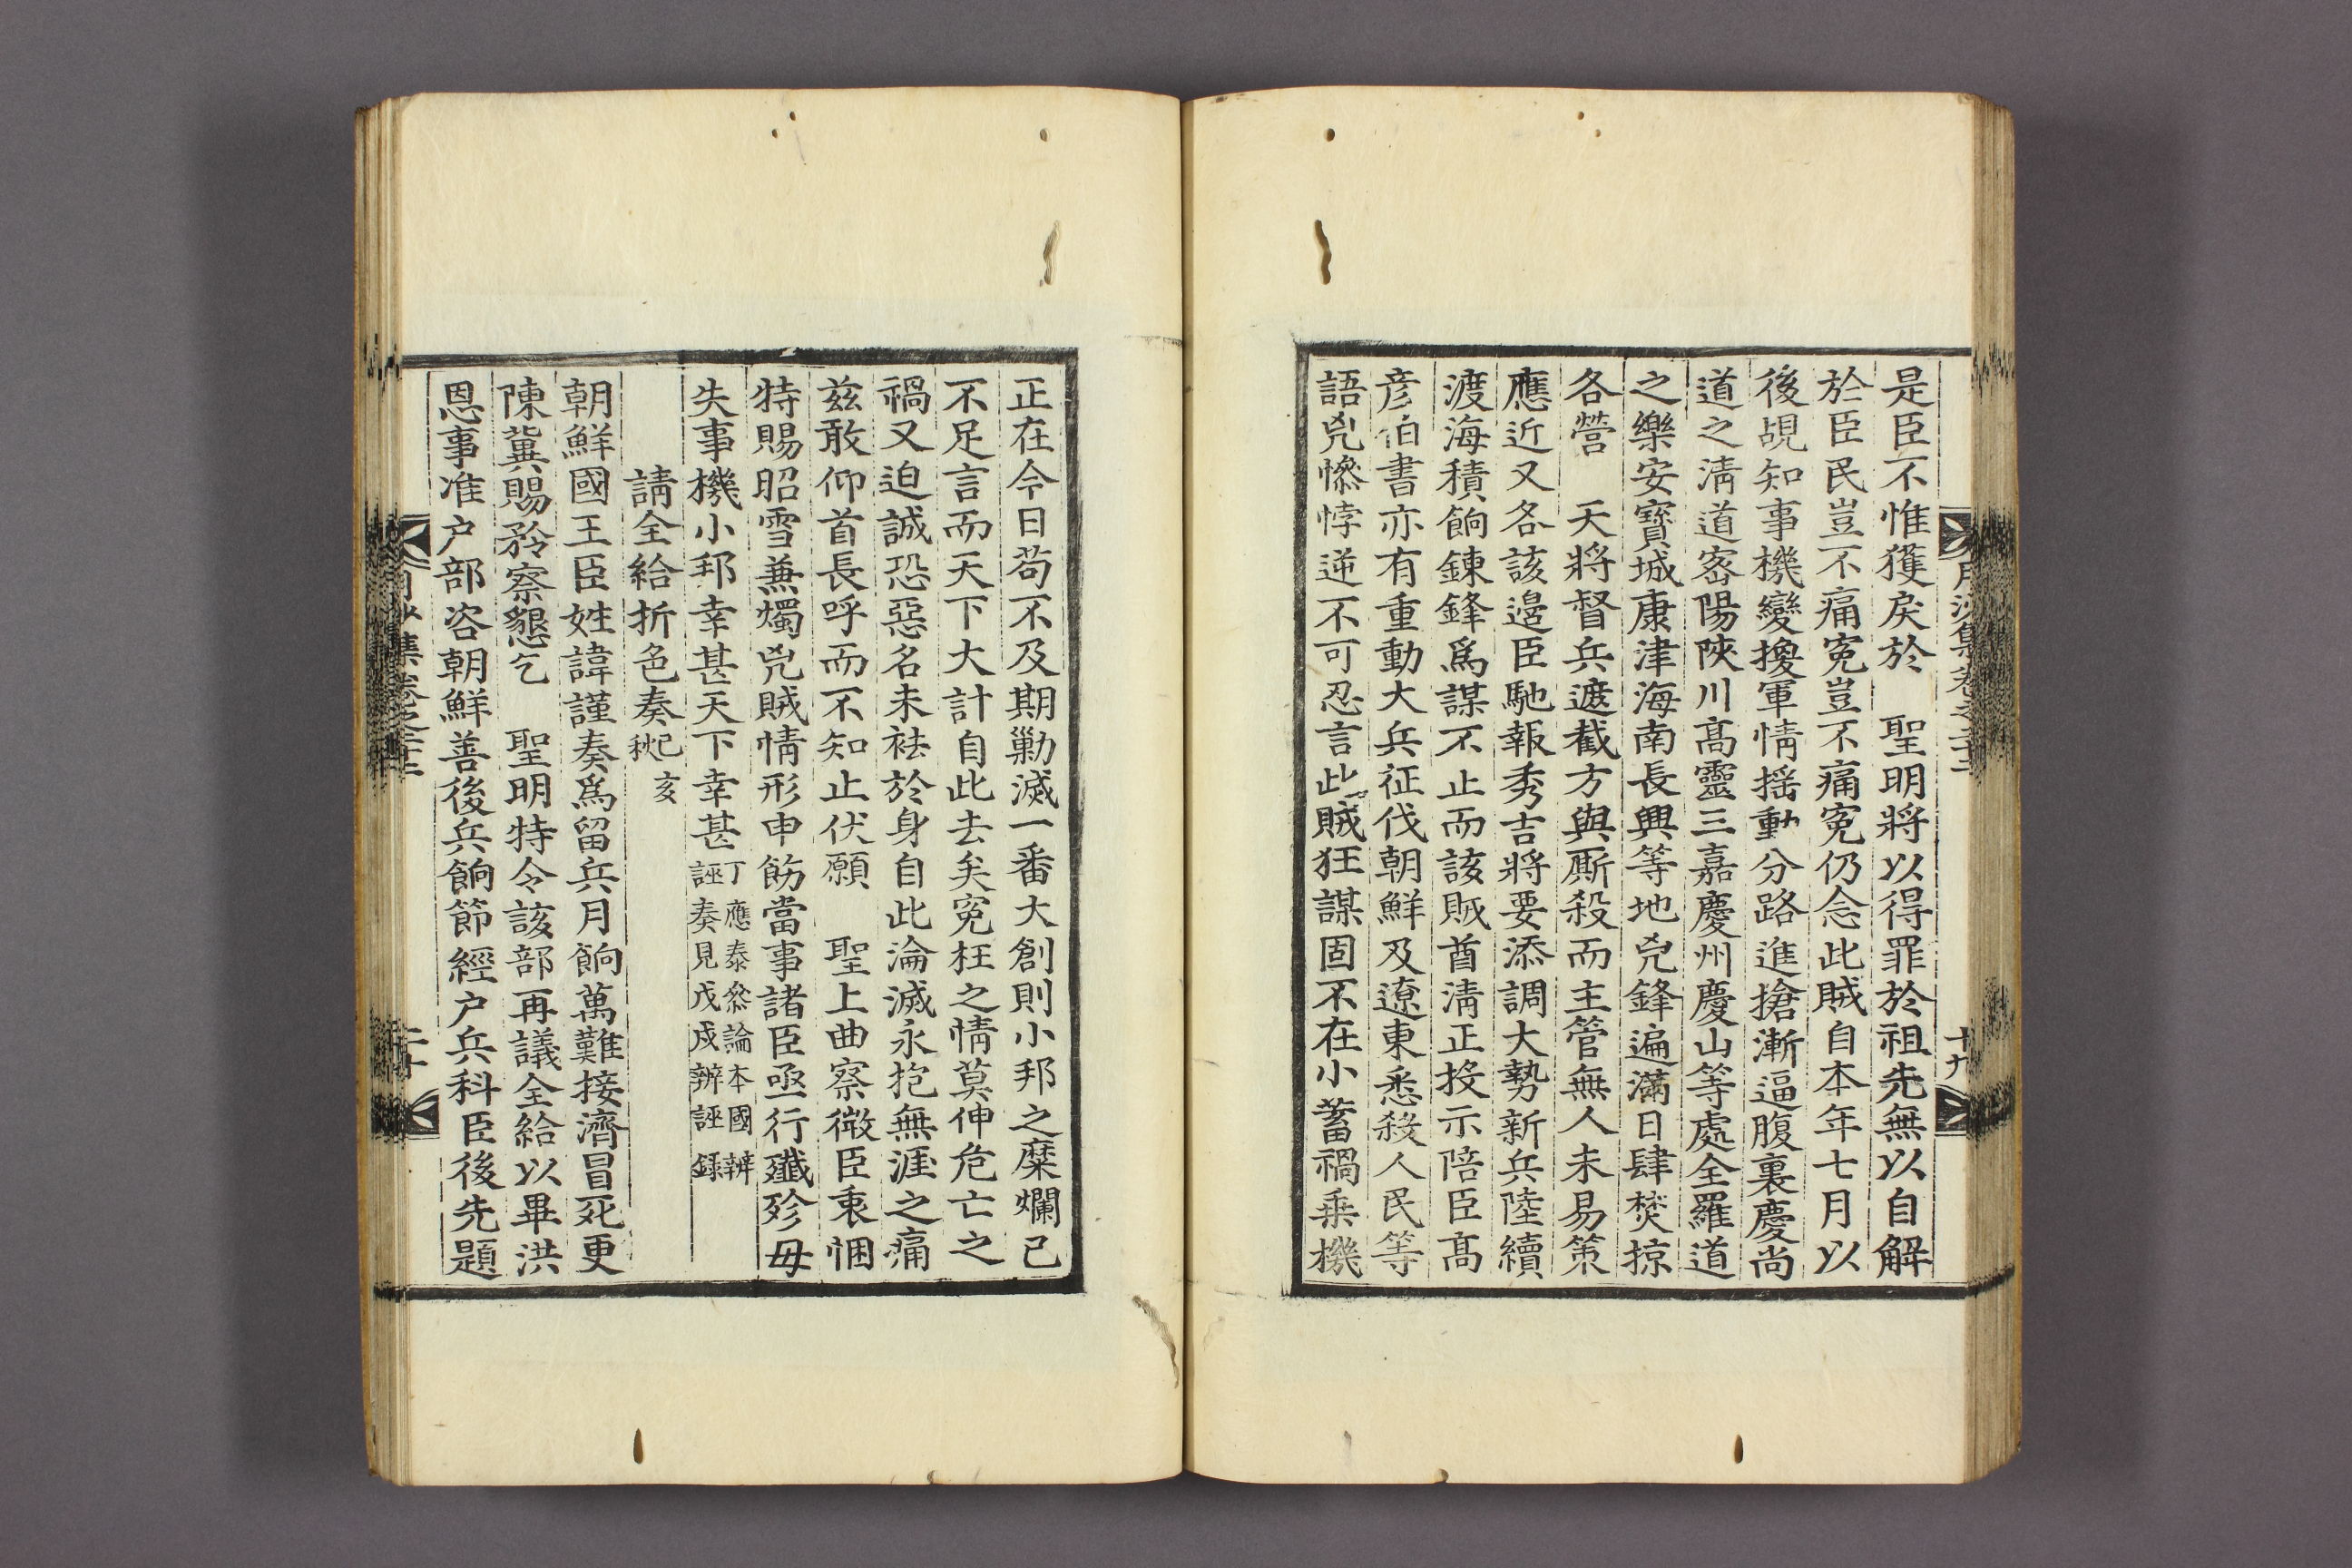 是臣不惟獲戾於　聖明將以得罪於祖先無以自解
於臣民豈不痛寃豈不痛寃仍念此賊自本年七月以
後覘知事機變擾軍情揺動分路進搶漸逼腹裏慶尚
道之淸道密陽陜川高靈三嘉慶州慶山等處全羅道
之樂安寶城康津海南長興等地兇鋒遍滿日肆焚掠
各營　天將督兵遮截方與厮殺而主管無人未易策
應近又各該邉臣馳報秀吉將要添調大勢新兵陸續
渡海積餉鍊鋒爲謀不止而該賊酋淸正投示陪臣高
彦伯書亦有重動大兵征伐朝鮮及遼東悉殺人民等
語兇慘悖逆不可忍言此賊狂謀固不在小蓄禍乗機
正在今日苟不及期勦滅一番大創則小邦之糜爛已
不足言而天下大計自此去矣寃枉之情莫伸危亡之
禍又迫誠恐惡名未祛於身自此淪滅永抱無涯之痛
玆敢仰首長呼而不知止伏願　聖上曲察微臣衷悃
特賜昭雪兼燭兇賊情形申飭當事諸臣亟行殱殄毋
失事機小邦幸甚天下幸甚丁應泰叅論本國辨
誣奏見戊戌辨誣錄
請全給折色奏己亥
秋
朝鮮國王臣姓諱謹奏爲留兵月餉萬難接濟冒死更
陳冀賜矜察懇乞　聖明特令該部再議全給以畢洪
恩事准户部咨朝鮮善後兵餉節經户兵科臣後先題
月沙集卷之二十二
十九
月沙集卷之二十二
二十